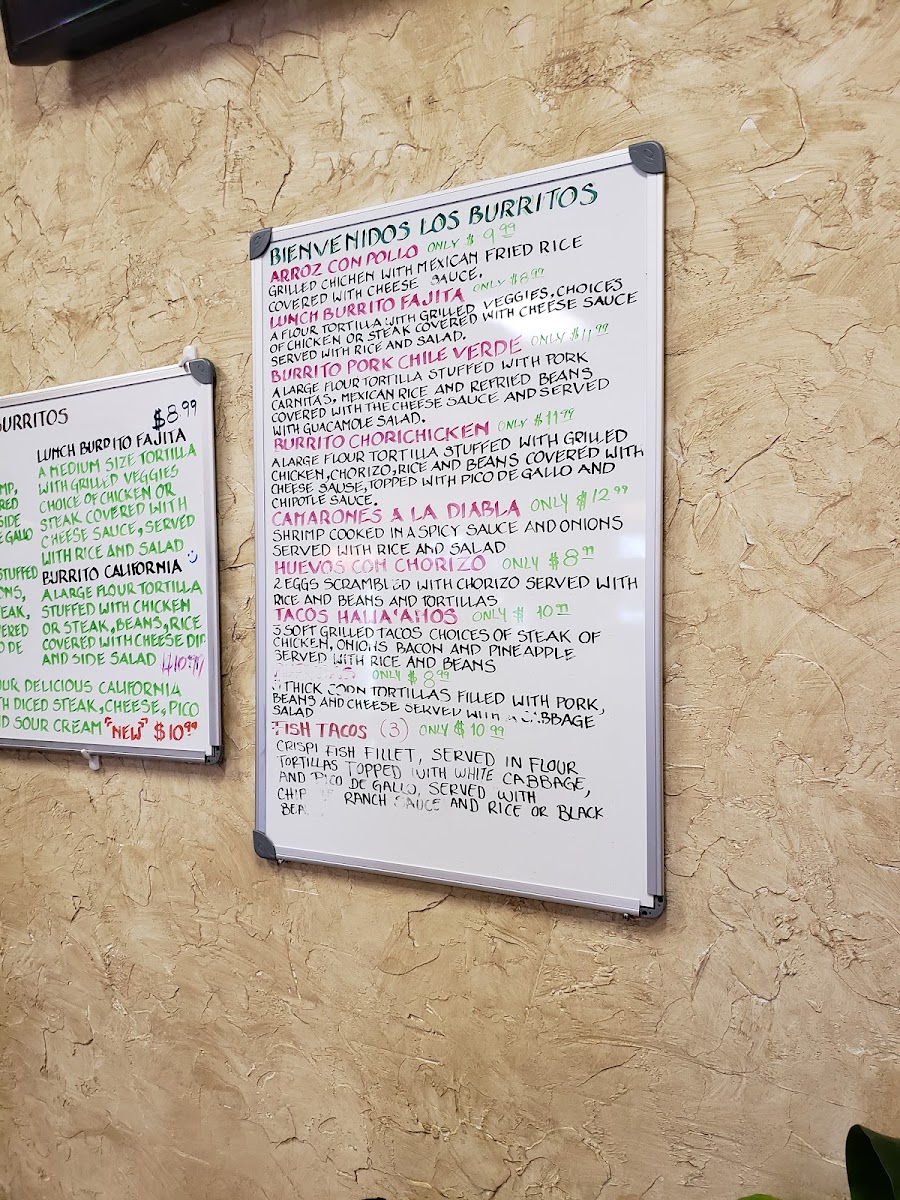 BURRITOS
$8.99
LUNCH BURRITO FAJITA
A MEDIUM SIZE TORTILLA
WITH GRILLED VEGGIES
CHOICE OF CHICKEN OR
STEAK COVERED WITH
CHEESE SAUCE, SERVED
WITH RICE AND SALAD
BURRITO CALIFORNIA
A LARGE FLOUR TORTILLA
STUFFED WITH CHICKEN
OR STEAK, BEANS, RICE
COVERED WITH CHEESE DIP
AND SIDE SALAD
SIDE
GALLO
STUFFED
DE
DELICIOUS CALIFORNIA
DICED STEAK, CHEESE, PICO
SOUR CREAM "NEW" $10.99
BIENVENIDOS LOS BURRITOS
ARROZ CON POLLO ONLY $9.99
GRILLED CHICHEN WITH MEXICAN FRIED RICE
COVERED WITH CHEESE SAUCE.
LUNCH BURRITO FAJITA ONLY $8.99
A FLOUR TORTILLA WITH GRILLED VEGGIES, CHOICES
OF CHICKEN OR STEAK COVERED WITH CHEESE SAUCE
SERVED WITH RICE AND SALAD.
BURRITO PORK CHILE VERDE ONLY $11.99
A LARGE FLOUR TORTILLA STUFFED WITH PORK
CARNITAS, MEXICAN RICE AND REFRIED BEANS
COVERED WITH THE CHEESE SAUCE AND SERVED
WITH GUACAMOLE SALAD.
BURRITO CHORICHICKEN ONLY $11.99
A LARGE FLOUR TORTILLA STUFFED WITH GRILLED
CHICKEN, CHORIZO, RICE AND BEANS COVERED WITH
CHEESE SAUSE, TOPPED WITH PICO DE GALLO AND
CHIPOTLE SAUCE.
CAMARONES A LA DIABLA ONLY $12.99
SHRIMP COOKED IN A SPICY SAUCE AND ONIONS
SERVED WITH RICE AND SALAD
HUEVOS CON CHORIZO ONLY $8.99
2 EGGS SCRAMBLED WITH CHORIZO SERVED WITH
RICE AND BEANS AND TORTILLAS
TACOS ONLY $10.99
3 SOFT GRILLED TACOS CHOICES OF STEAK OF
CHICKEN, ONIONS BACON AND PINEAPPLE
SERVED WITH RICE AND BEANS
ONLY $8.99
THICK CORN TORTILLAS FILLED WITH PORK,
BEANS AND CHEESE SERVED WITH CABBAGE
SALAD
FISH TACOS (3) ONLY $10.99
CRISPI FISH FILLET, SERVED IN FLOUR
TORTILLAS TOPPED WITH WHITE CABBAGE,
AND PICO DE GALLO, SERVED WITH
RANCH SAUCE AND RICE OR BLACK